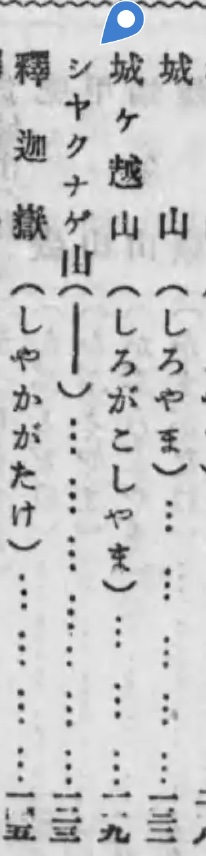 城山(しろやま)………………一三三
城ヶ越山(しろがこしやま)…………一一九
シヤクナゲ山(――)………………一二三
釋迦嶽(しやかがたけ)……………一四五